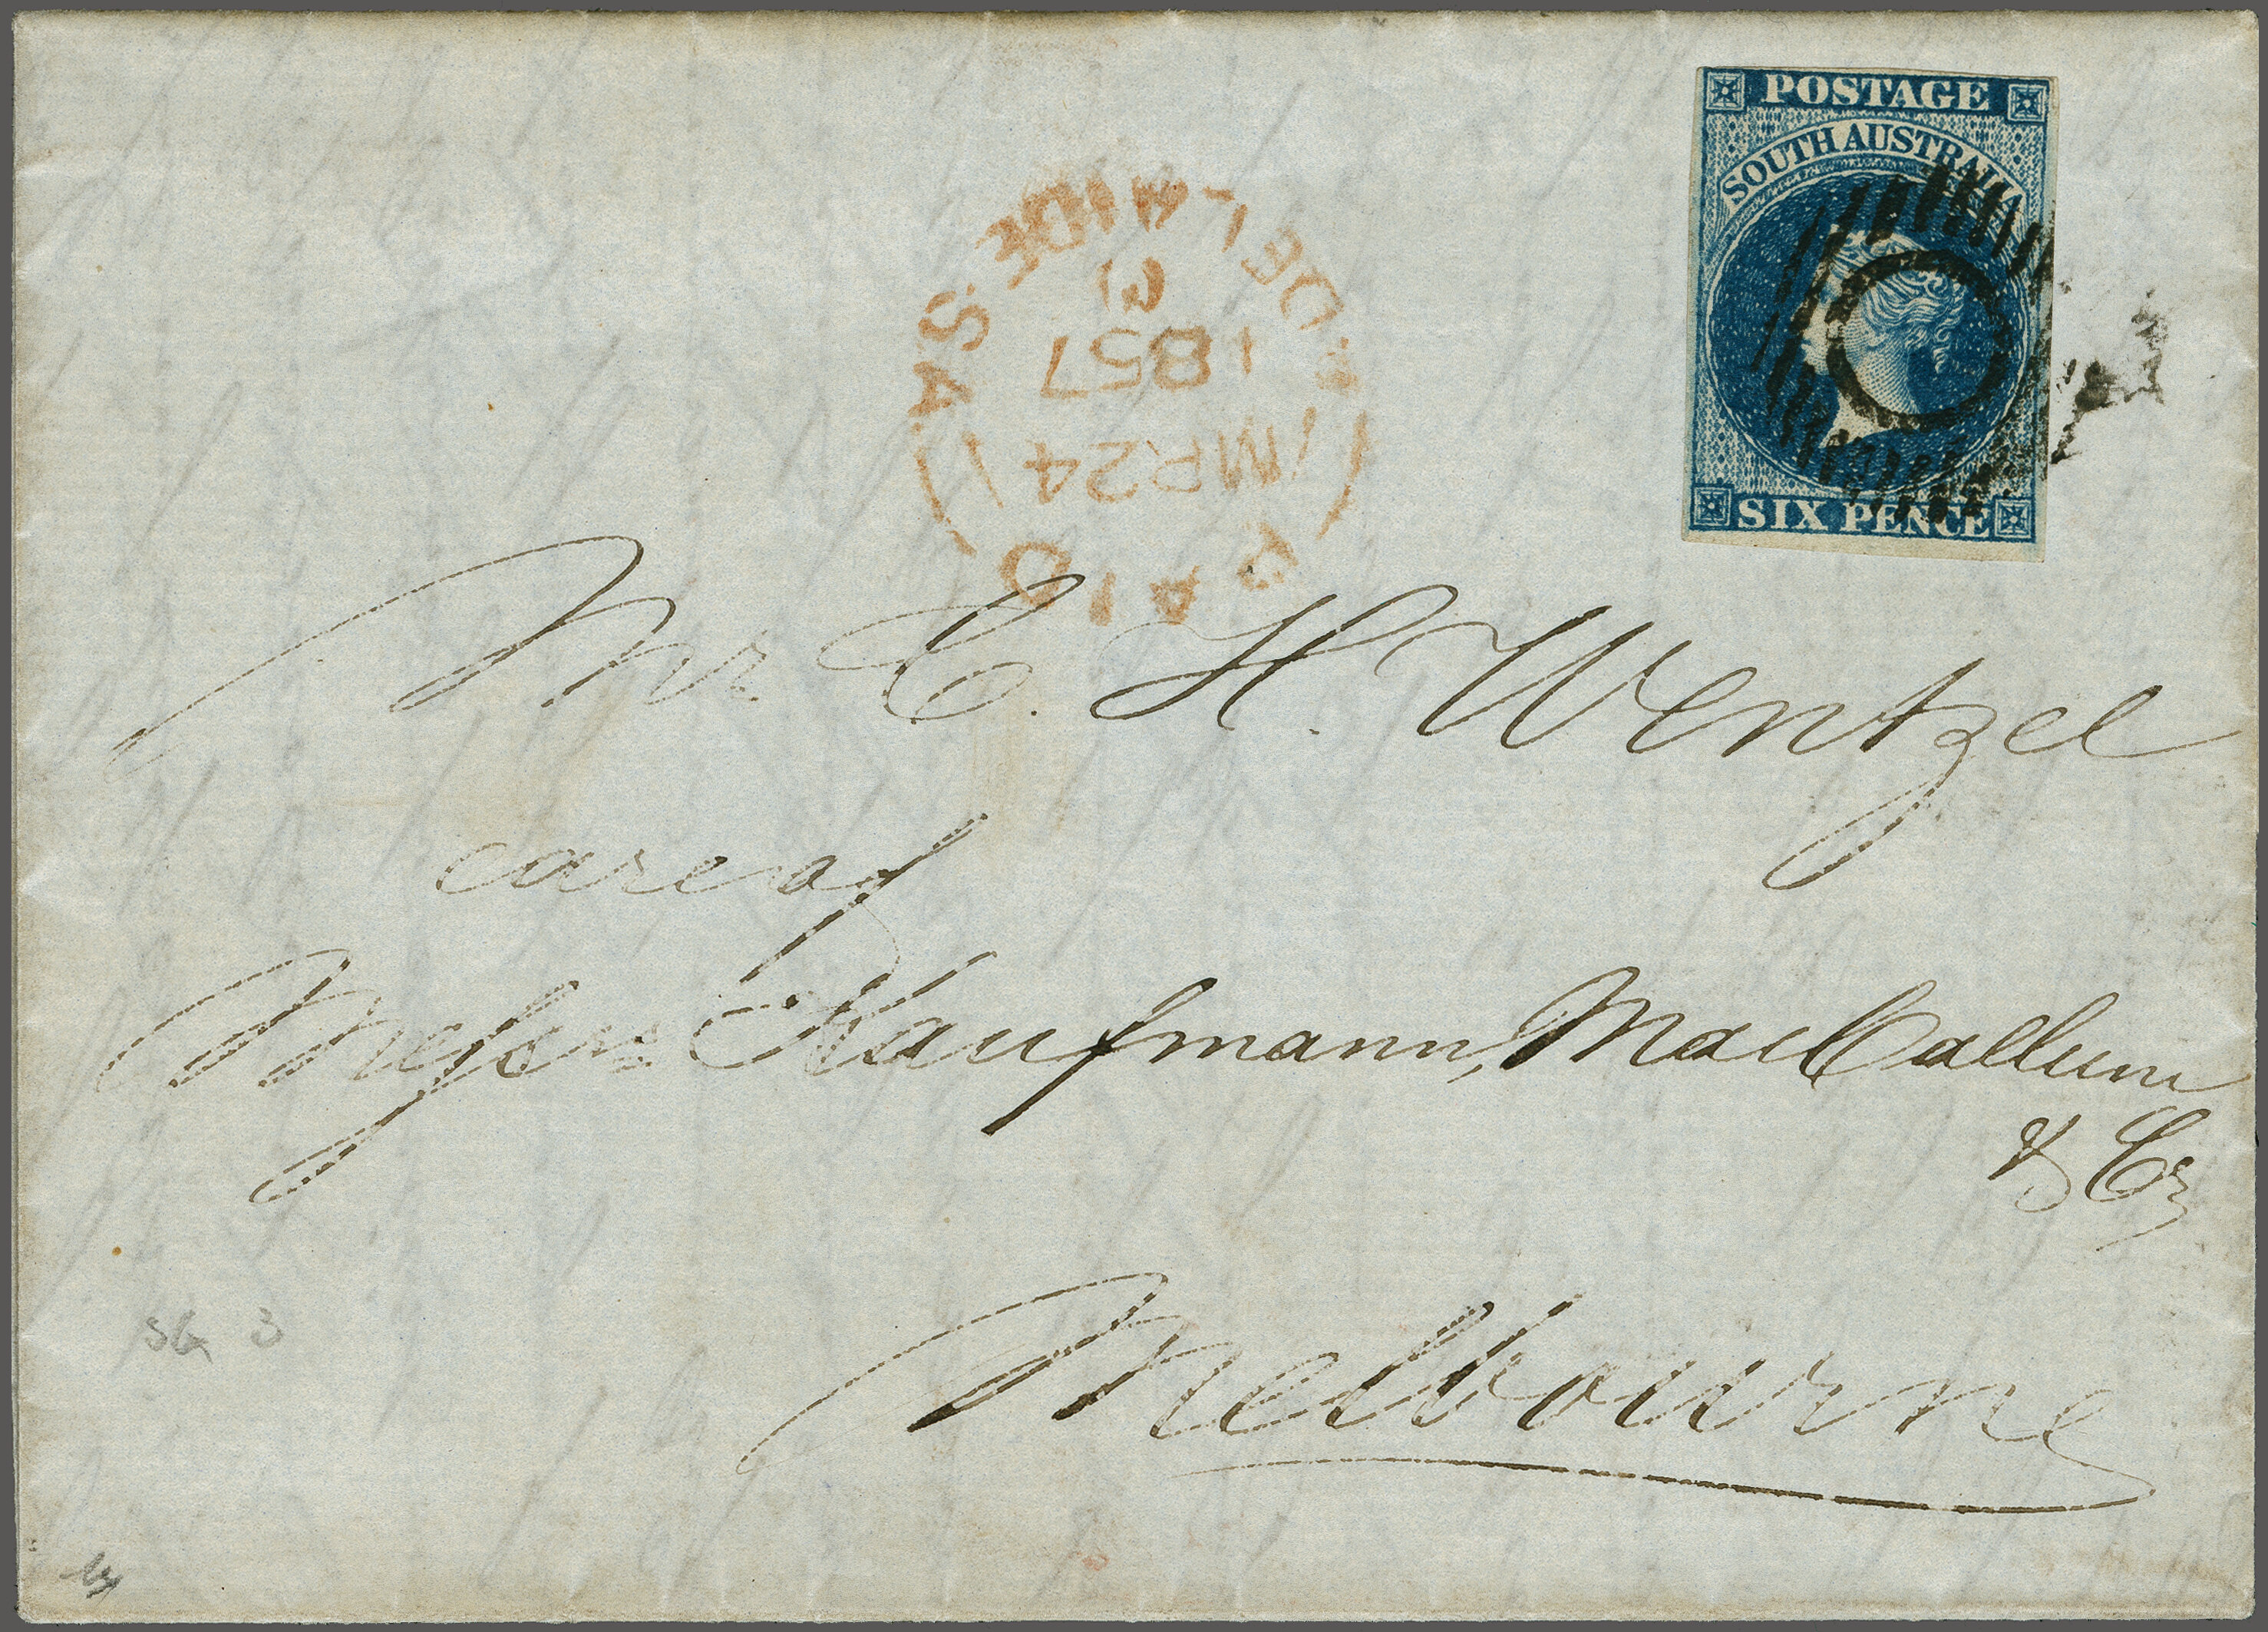 POSTAGE
SOUTH AUSTRALIA
SIX PENCE
ADELAIDE S.A.
1857
MR 24
PAID
Mr C. H. Wentzel
care of
Kaufmann, MacCallum
& Co
Melbourne
SG 3